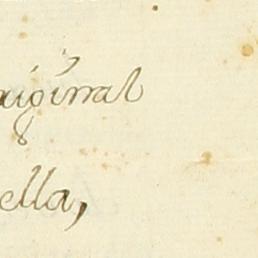 riginal
ella,